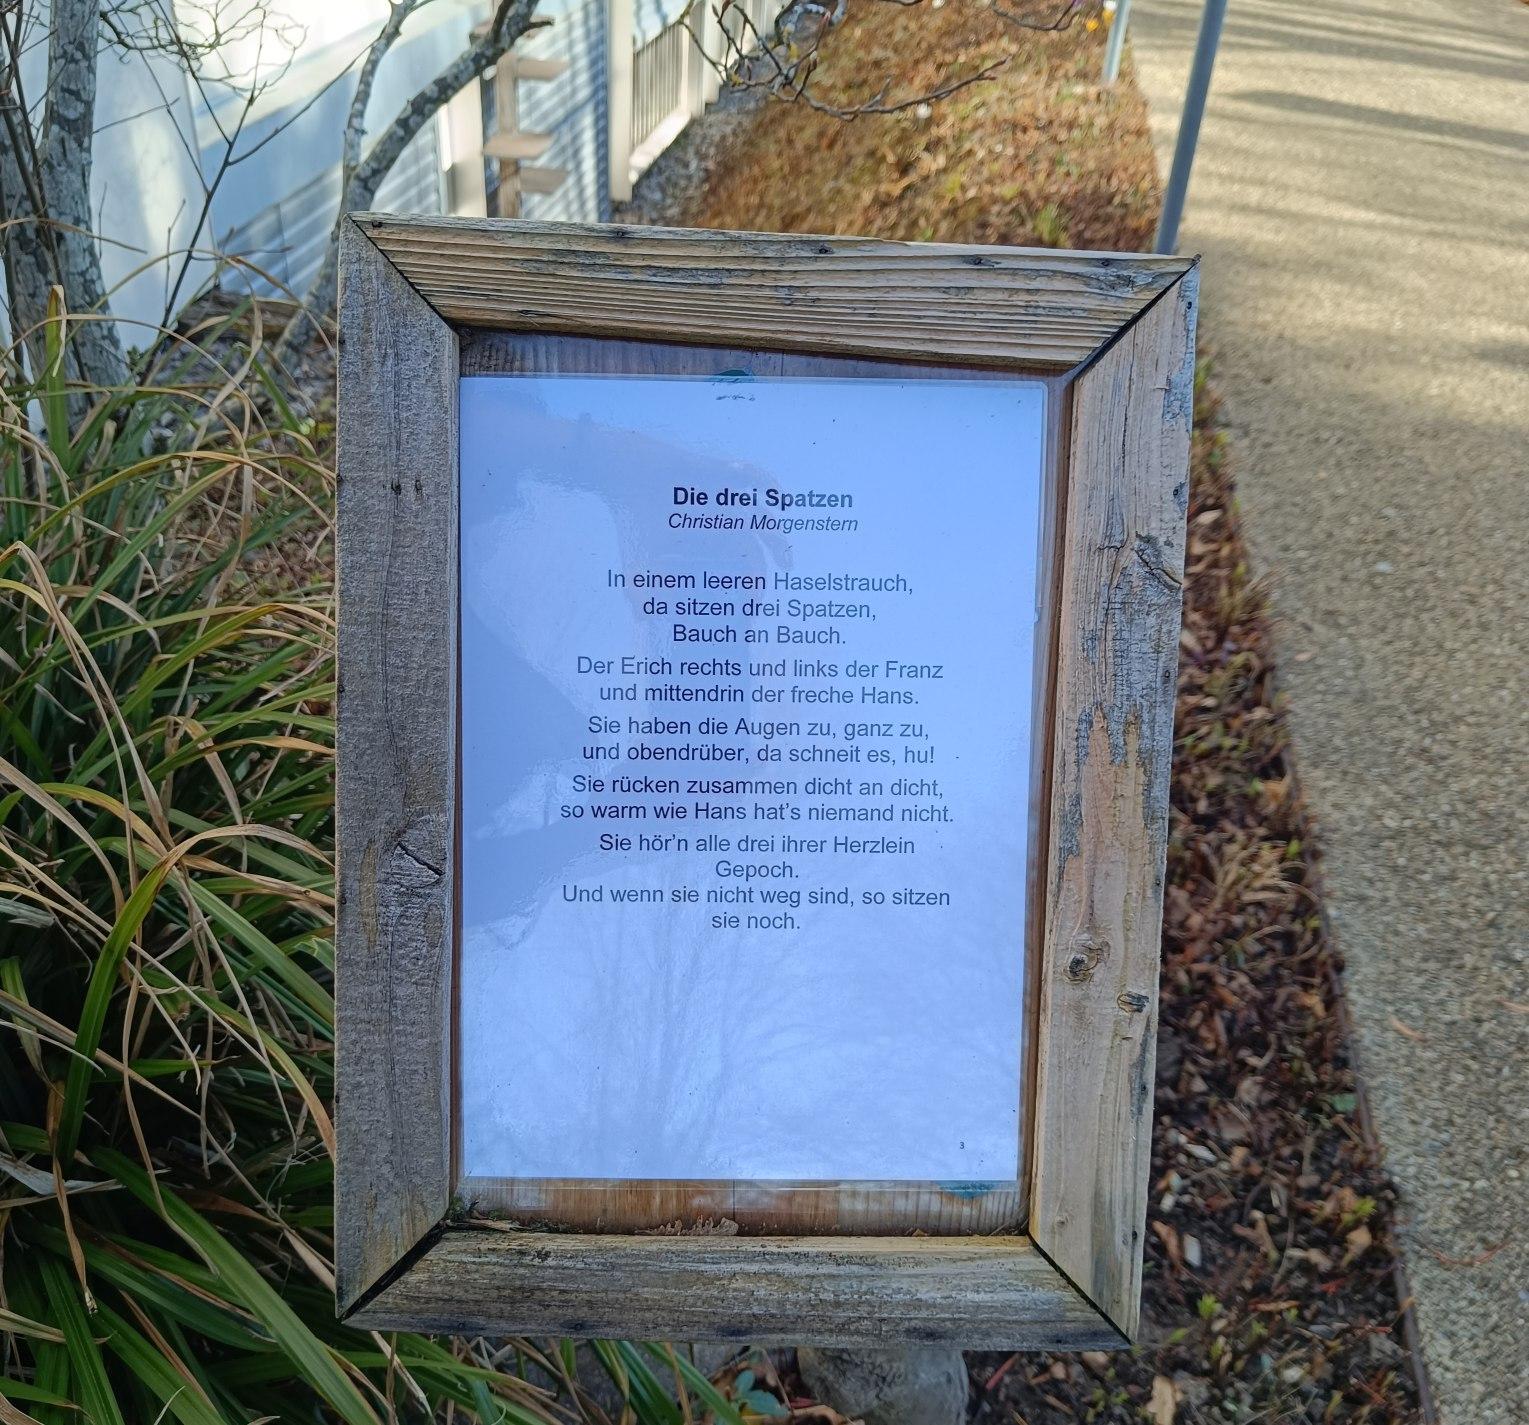 Die drei Spatzen
Christian Morgenstern
In einem leeren Haselstrauch,
da sitzen drei Spatzen,
Bauch an Bauch.
Der Erich rechts und links der Franz
und mittendrin der freche Hans.
Sie haben die Augen zu, ganz zu,
und obendrüber, da schneit es, hu!
Sie rücken zusammen dicht an dicht,
so warm wie Hans hat’s niemand nicht.
Sie hör’n alle drei ihrer Herzlein
Gepoch.
Und wenn sie nicht weg sind, so sitzen
sie noch.
3